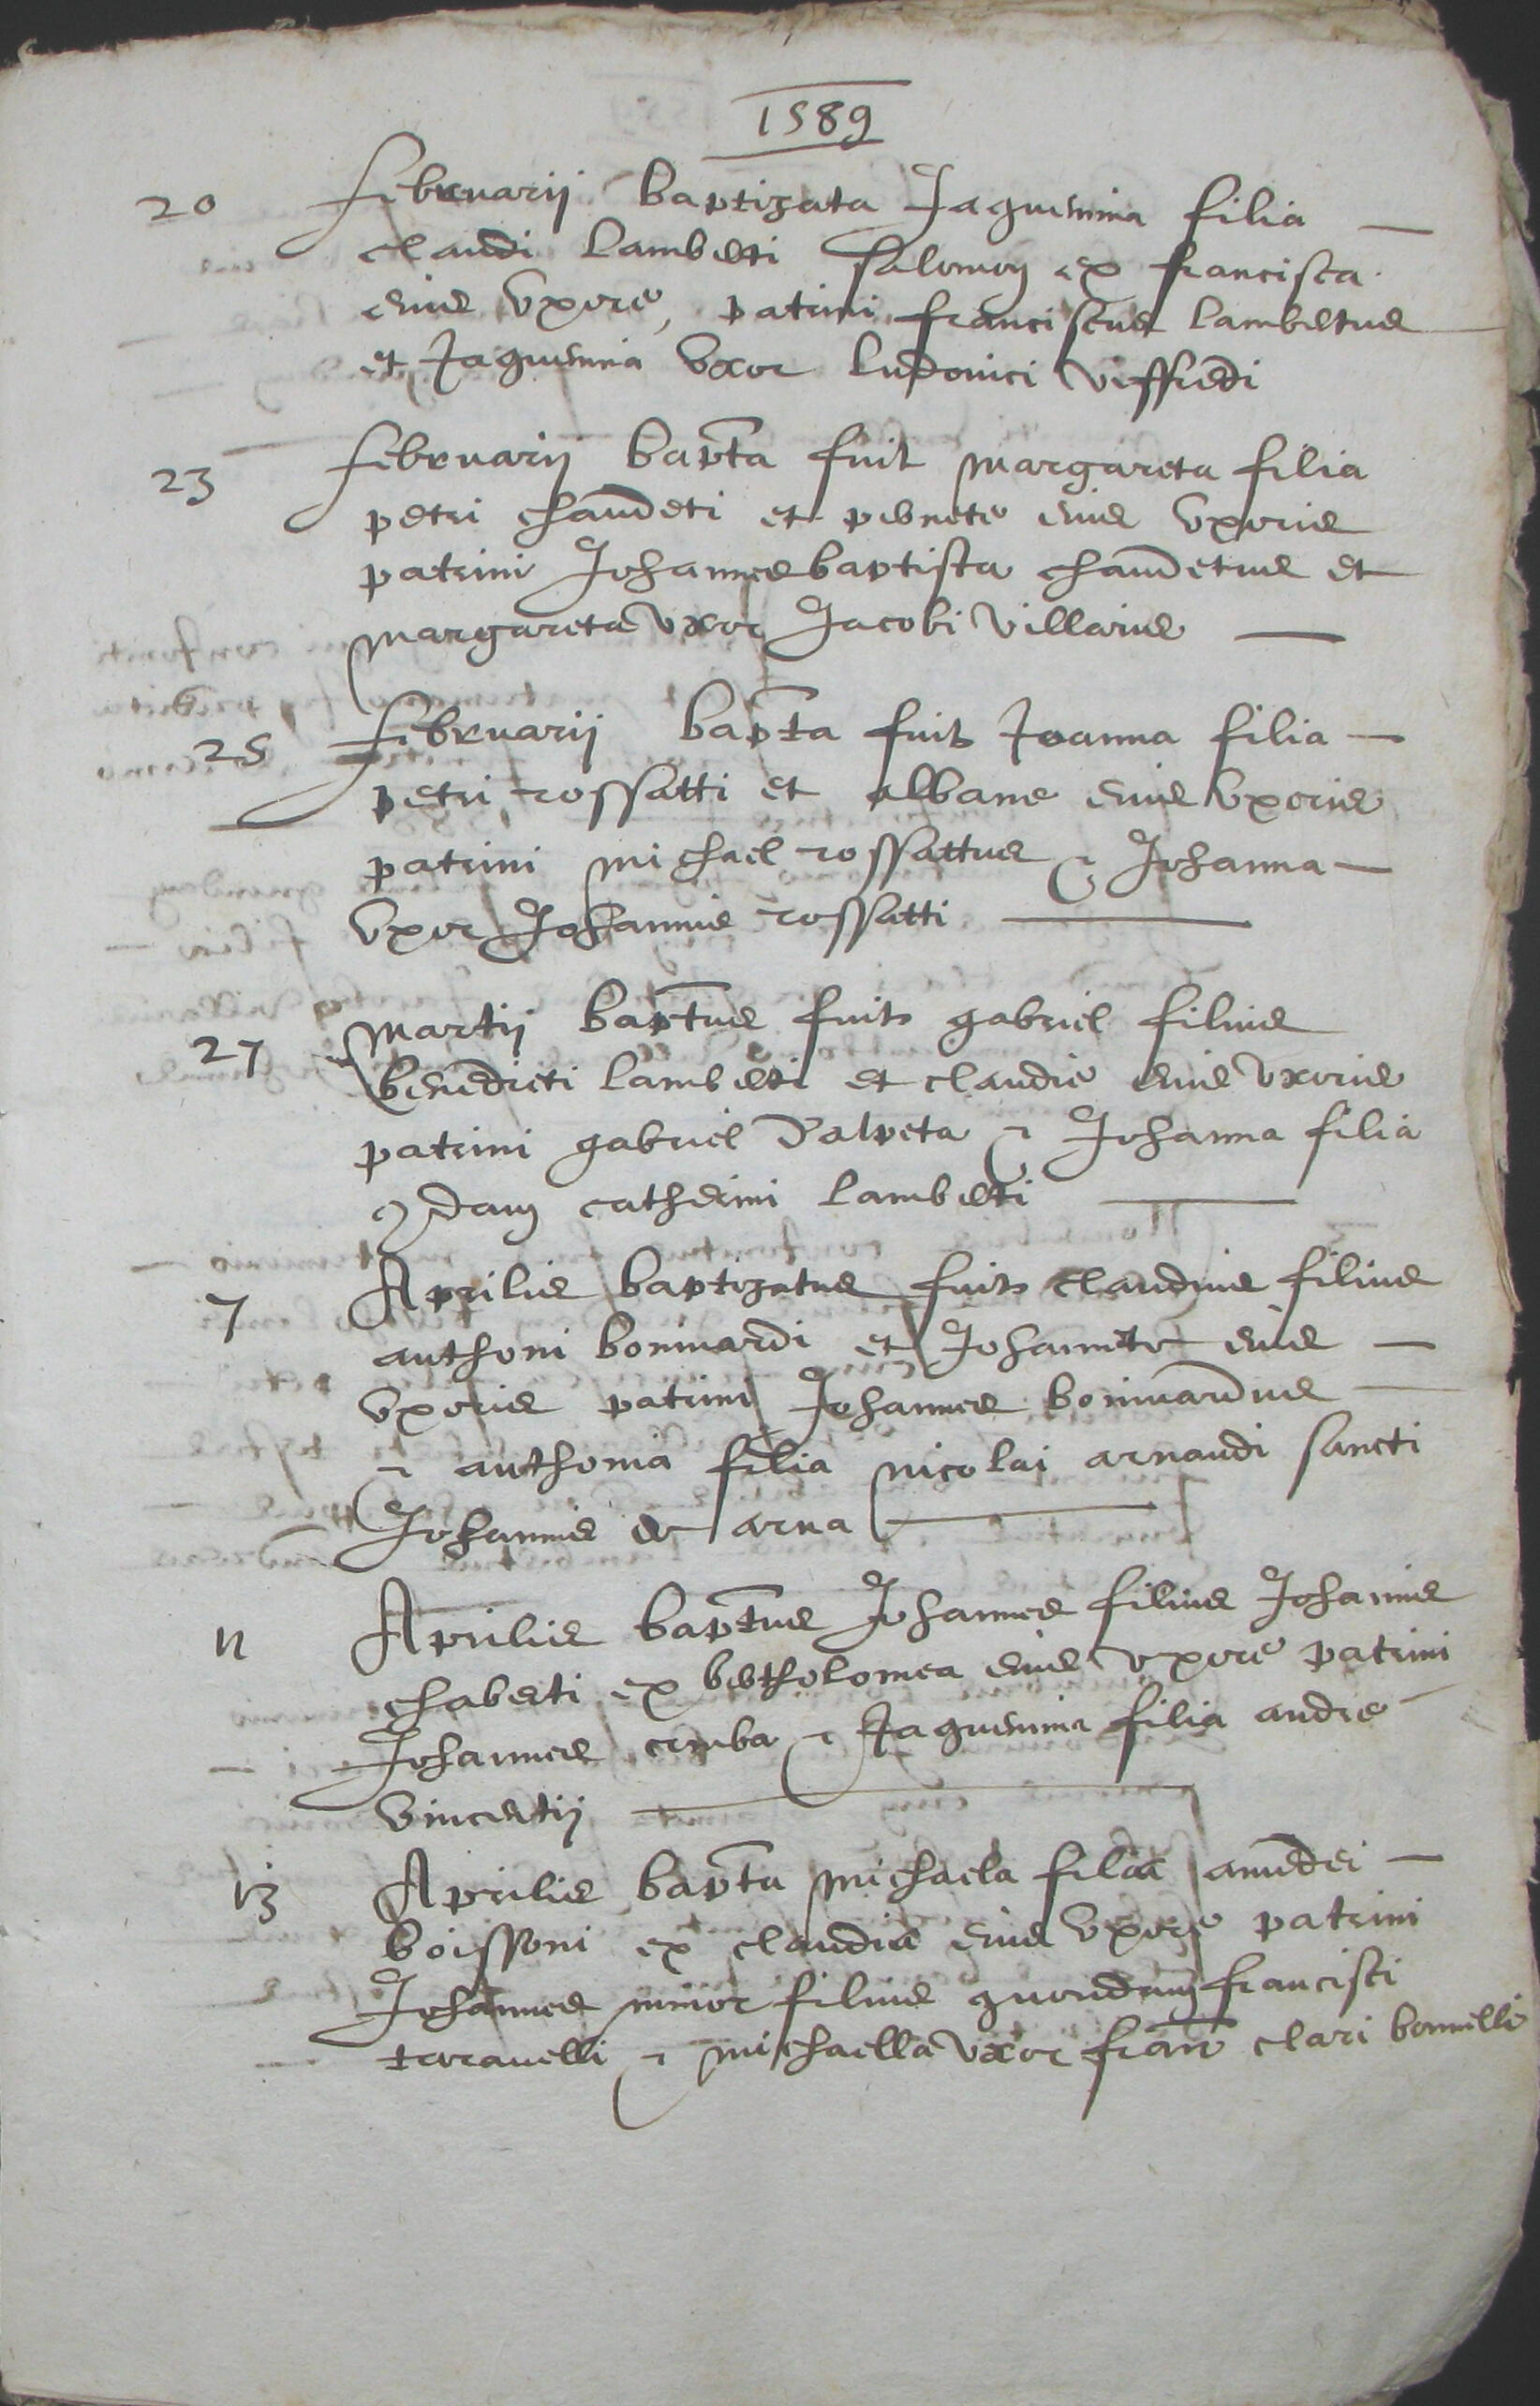 1589
20 februarii baptizata Jaquemina filia
claudi lamberti salomon ex francisca
eius vxore, patrini franciscus lambertus
et Jaquemina vxor ludovici
23 februarii bapta fuit margareta filia
petri chaudeti et pernete eius vxoris
patrini Johannes baptista chaudetus et
margareta vxor Jacobi villarius
25 februarii bapta fuit Joanna filia
petri rossatti et albane eius vxoris
patrini michael rossattus & Johanna
vxor Johannis rossatti
27 martii baptus fuit gabriel filius
benedicti lamberti et claudie eius vxoris
patrini gabriel d'alpeta & Johanna filia
qdam catherini lamberti
7 Aprilis baptizatus fuit claudius filius
anthoni boniuardi et Johannete eius
vxoris patrini Johannes boniuardus
& anthonia filia nicolai arnaudi sancti
Johannis de arna
11 Aprilis baptus Johannes filius Johannis
chaberti ex bertholomea eius vxore patrini
Johannes & Jaquemina filia andre
vincentii
13 Aprilis bapta michaela filia amedei
boissoni ex claudia eius vxore patrini
Johannes minor filius quondam francisci
trorauelli & michaella vxor fran clari bonnelli